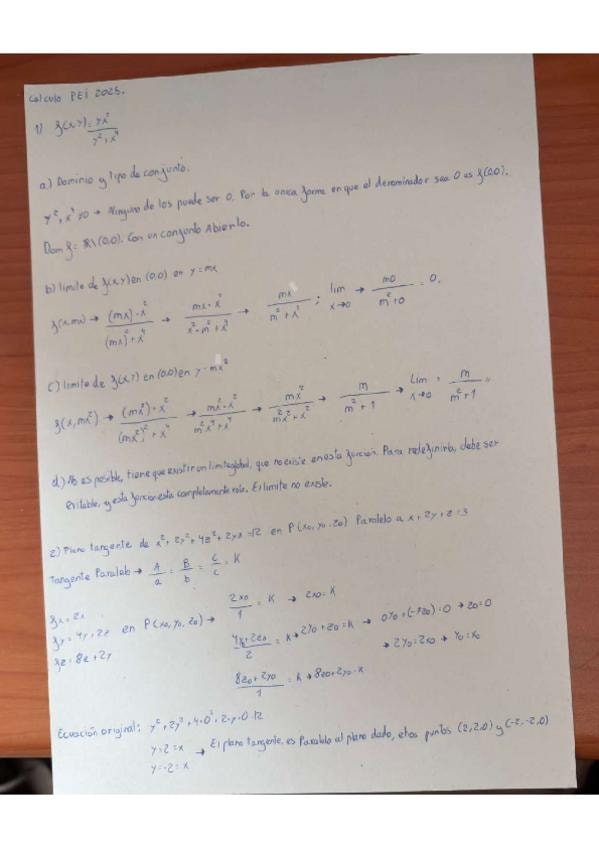 Calculo PEI 2025.
1) f(x,y) = yx² / y²+x⁴
a) Dominio y tipo de conjunto.
y², x⁴ ≠0 → Ninguno de los puede ser 0. Por la unica forma en que el denominador sea 0 es f(0,0).
Dom f = R\(0,0). Con un conjunto Abierto.
b) limite de f(x,y) en (0,0) en y=mx
f(x,mx) → (mx)·x² / (mx)²+x⁴ → mx·x² / x²·m²+x⁴ → mx / m²+x² ; lim x→0 → m0 / m²+0 = 0.
c) limite de f(x,y) en (0,0) en y=mx²
f(x,mx²) → (mx²)·x² / (mx²)²+x⁴ → mx²·x² / m²x⁴+x⁴ → mx² / m²x²+x² → m / m²+1 → Lim x→0 = m / m²+1
d) No es posible, tiene que existir un limite global, que no existe en esta funcion. Para redefinirla, debe ser
Evitable, y esta funcion esta completamente rota. El limite no existe.
2) Plano tangente de x²+2y²+4z²+2yz=12 en P(x0,y0,z0) Paralelo a x+2y+z=3
Tangente Paralelo → A/a = B/b = C/c = K
fx = 2x
fy = 4y+2z en P(x0,y0,z0) →
fz = 8z+2y
2x0 / 1 = K → 2x0=K
4y0+2z0 / 2 = K → 2y0+z0=K → 0y0+(-7z0)=0 → z0=0
→ 2y0=2x0 → y0=x0
8z0+2y0 / 1 = K → 8z0+2y0=K
Ecuación original: y²+2y²+4·0²+2·y·0=12
y=2=x
y=-2=x → El plano tangente es Paralelo al plano dado, en los puntos (2,2,0) y (-2,-2,0)